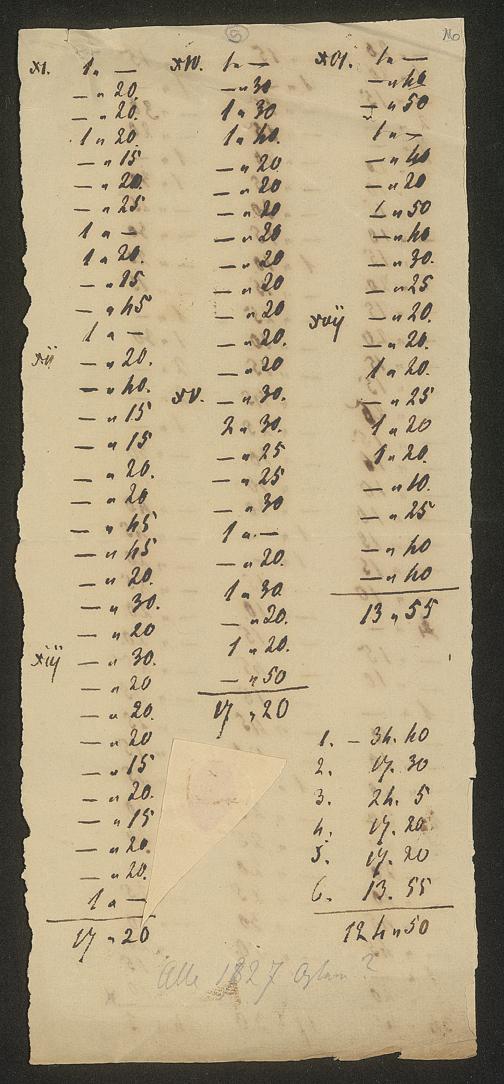 xi. 1 " —
— " 20.
— " 20.
1 " 20.
— " 15
— " 20.
— " 25
1 " —
1 " 20.
— " 15.
— " 45
1 " —
xii — " 20.
— " 40.
— " 15
— " 15
— " 20.
— " 20
— " 45
— " 45
— " 20.
— " 30.
— " 20
xiij — " 30.
— " 20
— " 20.
— " 20
— " 15
— " 20.
— " 15
— " 20.
— " 20.
1 " —
17 " 20
5
xiv. 1 " —
— " 30
1 " 30
1 " 40.
— " 20
— " 20
— " 20
— " 20
— " 20
— " 20
— " 20
— " 20.
— " 20
xv. — " 30.
2 " 30.
— " 25
— " 25
— " 30
1 " —
— " 20.
1 " 30
— " 20.
1 " 20.
— " 50
17 " 20
xvi. 1 " —
— " 40
— " 50
1 " —
— " 40
— " 20
1 " 50
— " 40
— " 30.
— " 25
xvij — " 20.
— " 20.
1 " 20
— " 25
1 " 20
1 " 20.
— " 10.
— " 25
— " 40
— " 40
13 " 55
1. — 34. 40
2. 17. 30
3. 24. 5
4. 17. 20.
5. 17. 20
6. 13. 55
124 " 50
Alle 1827